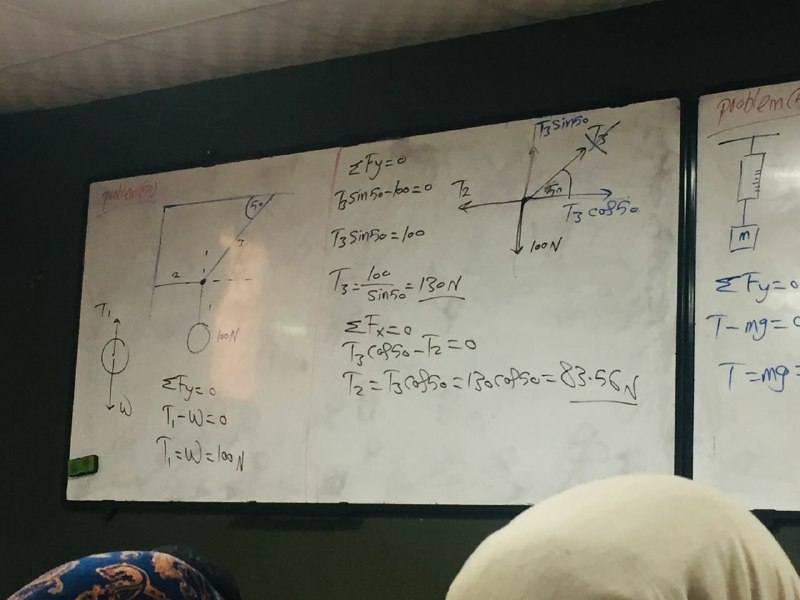 50
3
2
1
100N
T₁
W
ΣFy=0
T₁-W=0
T₁=W=100N
ΣFy=0
T₃sin50-100=0
T₃sin50=100
T₃=100/sin50=130N
ΣFx=0
T₃cos50-T₂=0
T₂=T₃cos50=130cos50=83.56N
T₃sin50
T₃
T₂
50
T₃cos50
100N
problem
m
ΣFy=0
T-mg=0
T=mg=